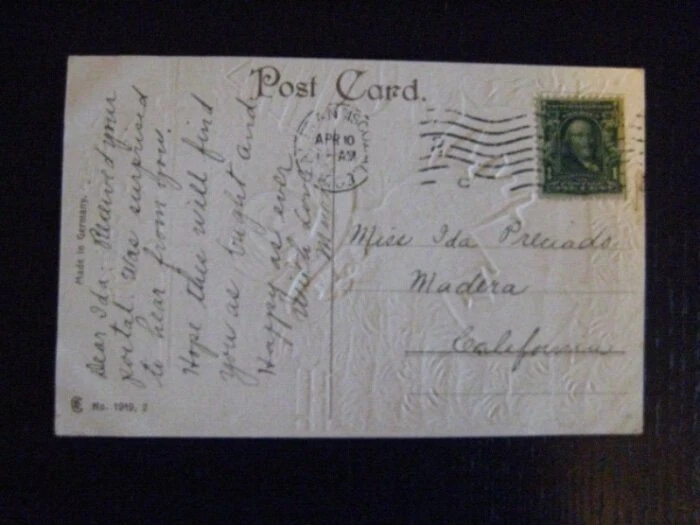 Post Card.
Made in Germany.
Dear Ida: Received your
postal. Was surprised
to hear from you.
Hope this will find
you as bright and
Happy as ever
With Love
SAN
APR 10
AM
Miss Ida Preciado
Madera
California
No. 1919, 2
1
1